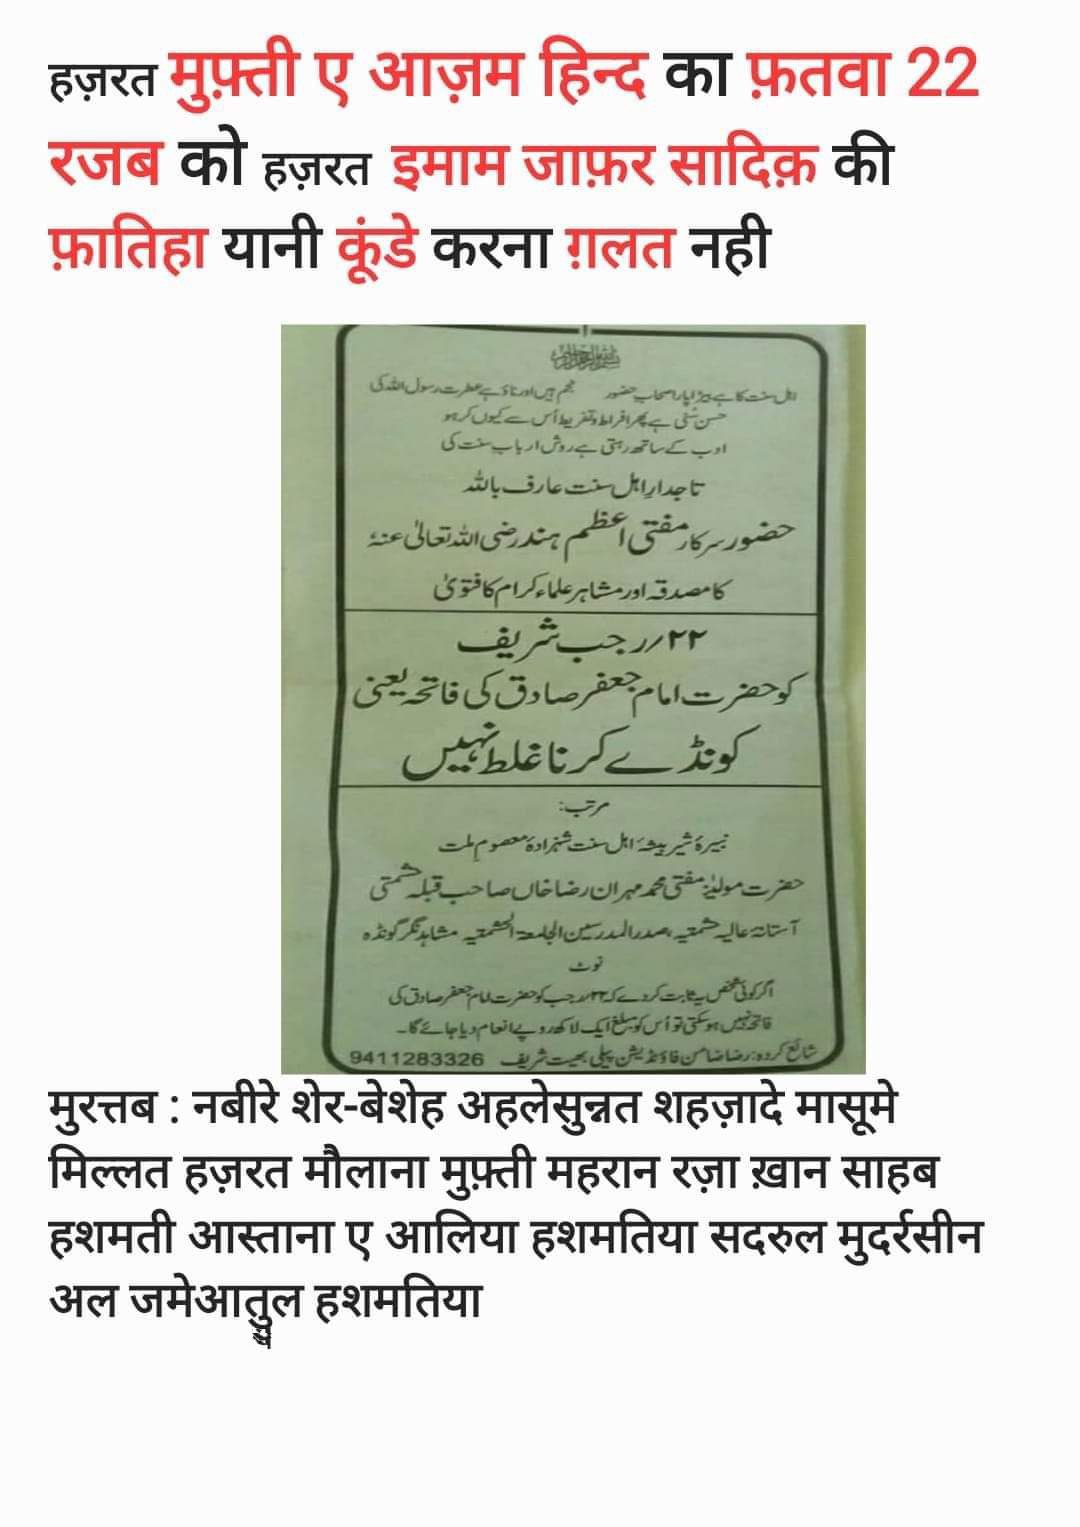 हज़रत मुफ़्ती ए आज़म हिन्द का फ़तवा 22
रजब को हज़रत इमाम जाफ़र सादिक़ की
फ़ातिहा यानी कूंडे करना ग़लत नही
اہل سنت کا ہے بیڑا پار اصحاب حضور نجم ہیں اور ناؤ ہے عترت رسول اللہ کی
حسن سُنّی ہے پھر افراط و تفریط اُس سے کیوں کر ہو
ادب کے ساتھ رہتی ہے روش ارباب سنت کی
تاجدار اہل سنت عارف باللہ
حضور سرکار مفتی اعظم ہند رضی اللہ تعالیٰ عنہٗ
کا مصدقہ اور مشاہر علماء کرام کا فتویٰ
۲۲؍رجب شریف
کو حضرت امام جعفر صادق کی فاتحہ یعنی
کونڈے کرنا غلط نہیں
مرتب:
نبیرۂ شیر بیشۂ اہل سنت شہزادۂ معصوم ملت
حضرت مولینٰا مفتی محمد مہران رضا خاں صاحب قبلہ حشمتی
آستانۂ عالیہ حشمتیہ، صدر المدرسین الجامعۃ الحشمتیہ مشاہد نگر گونڈہ
نوٹ
اگر کوئی شخص یہ ثابت کردے کہ ۲۲؍رجب کو حضرت امام جعفر صادق کی
فاتحہ نہیں ہوسکتی تو اُس کو مبلغ ایک لاکھ روپے انعام دیا جائے گا۔
شائع کردہ: رضا ضامن فاؤنڈیشن پیلی بھیت شریف 9411283326
मुरत्तब : नबीरे शेर-बेशेह अहलेसुन्नत शहज़ादे मासूमे
मिल्लत हज़रत मौलाना मुफ़्ती महरान रज़ा ख़ान साहब
हशमती आस्ताना ए आलिया हशमतिया सदरुल मुदर्रसीन
अल जमेआतुल हशमतिया